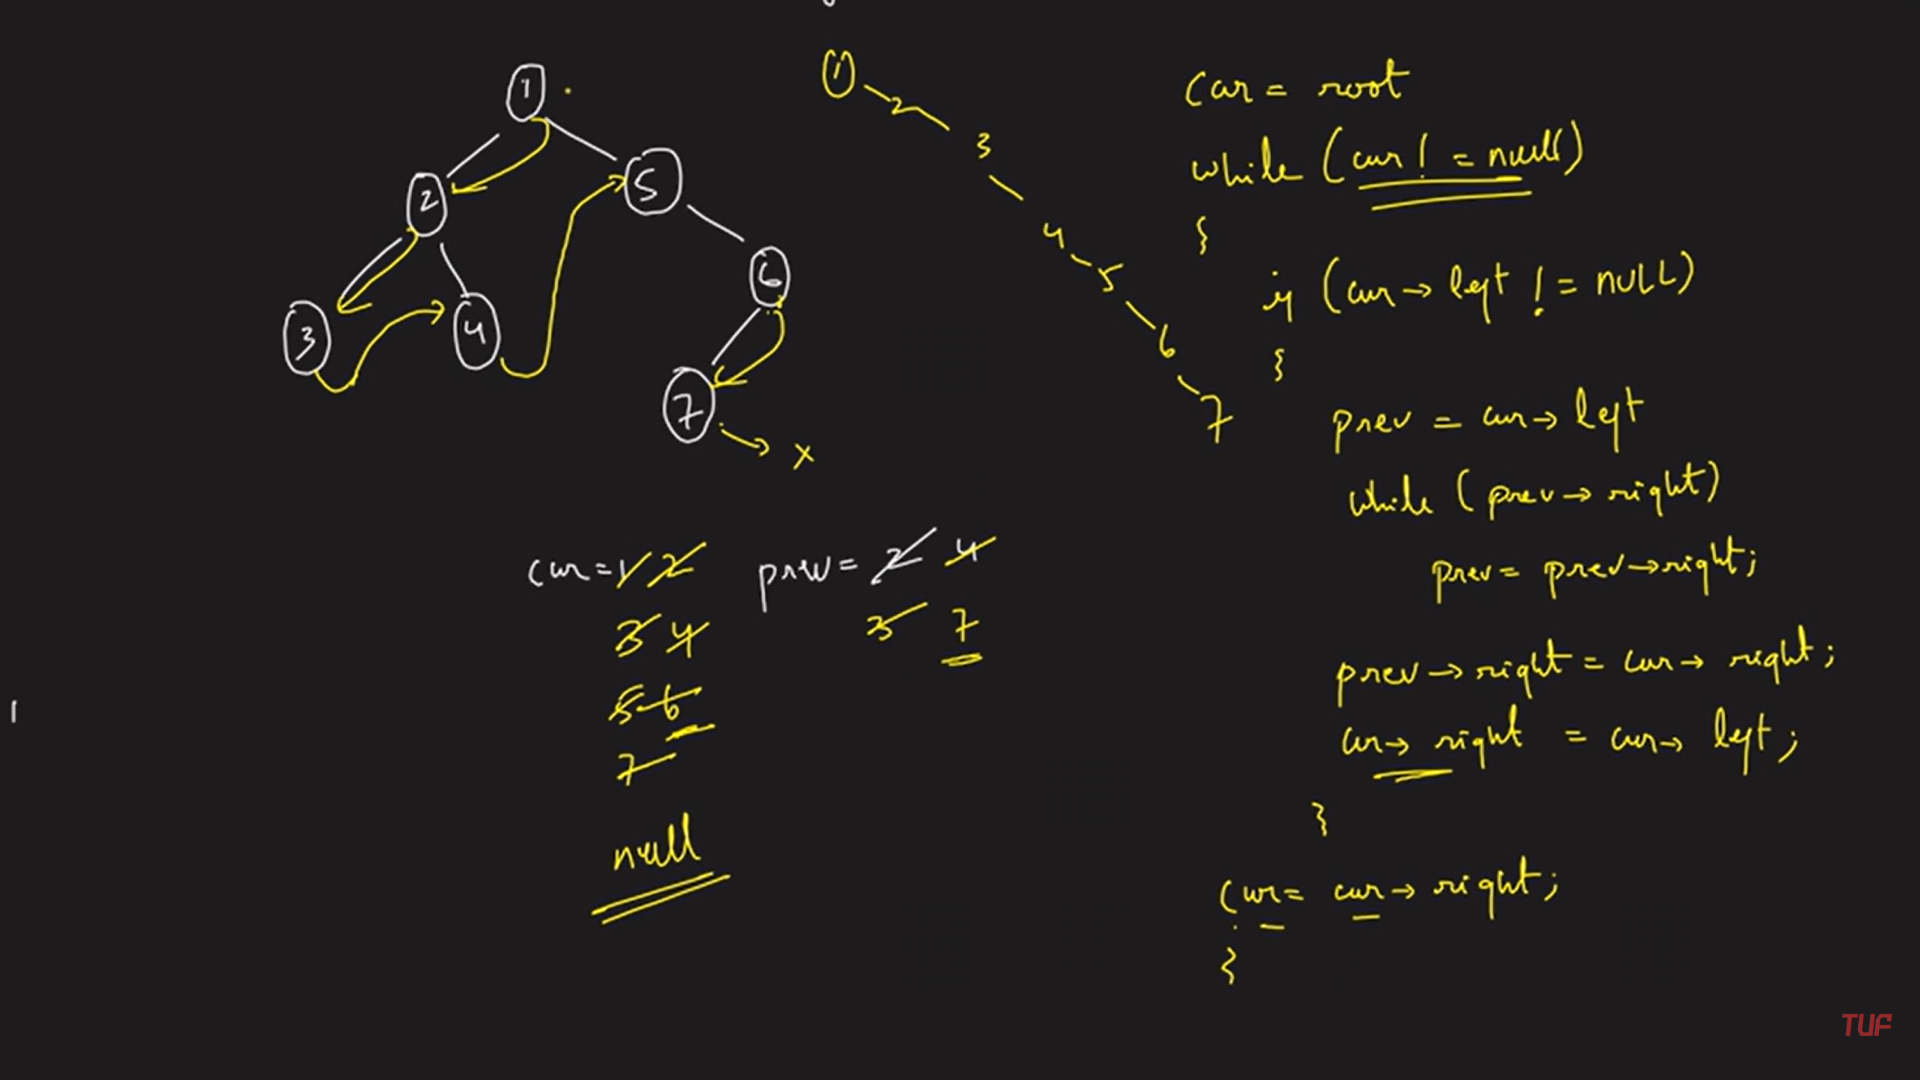 1
2
5
3
4
6
7
x
1
2
3
4
5
6
7
cur = 1 2
3 4
5 6
7
null
prev = 2 4
3 7
cur = root
while (cur != null)
{
if (cur → left != NULL)
{
prev = cur → left
while (prev → right)
prev = prev → right;
prev → right = cur → right;
cur → right = cur → left;
}
cur = cur → right;
}
TUF